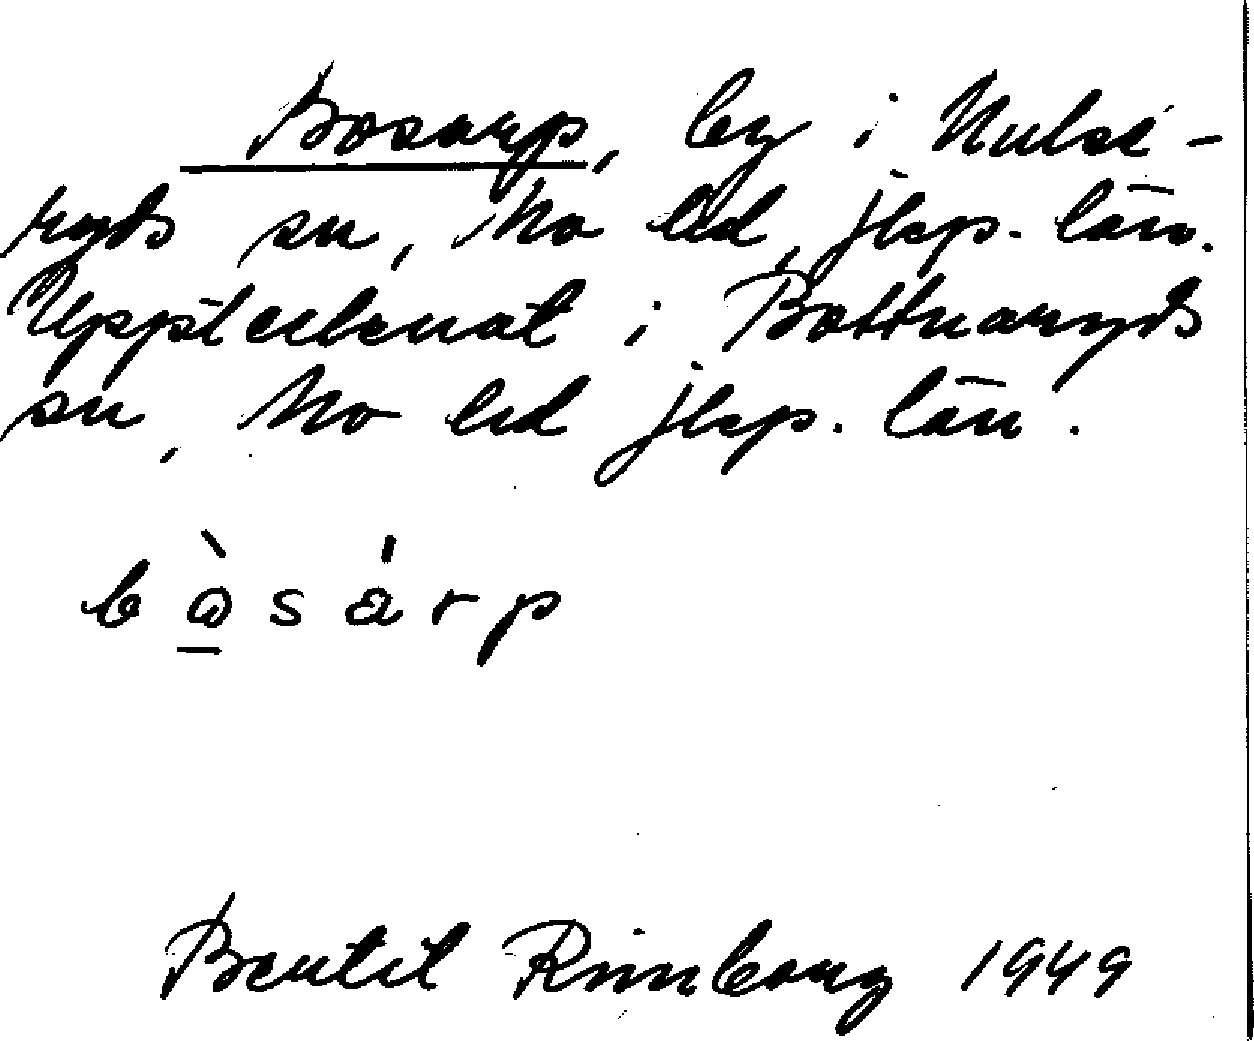 Bosarp, by i Mulse-
ryds sn, Mo hd, jkp. län.
Upptecknat i Bottnaryds
sn, Mo hd jkp. län.
b ò̱ s á r p
1949